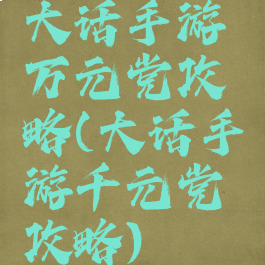 大话手游
万元党攻
略(大话手
游千元党
攻略)